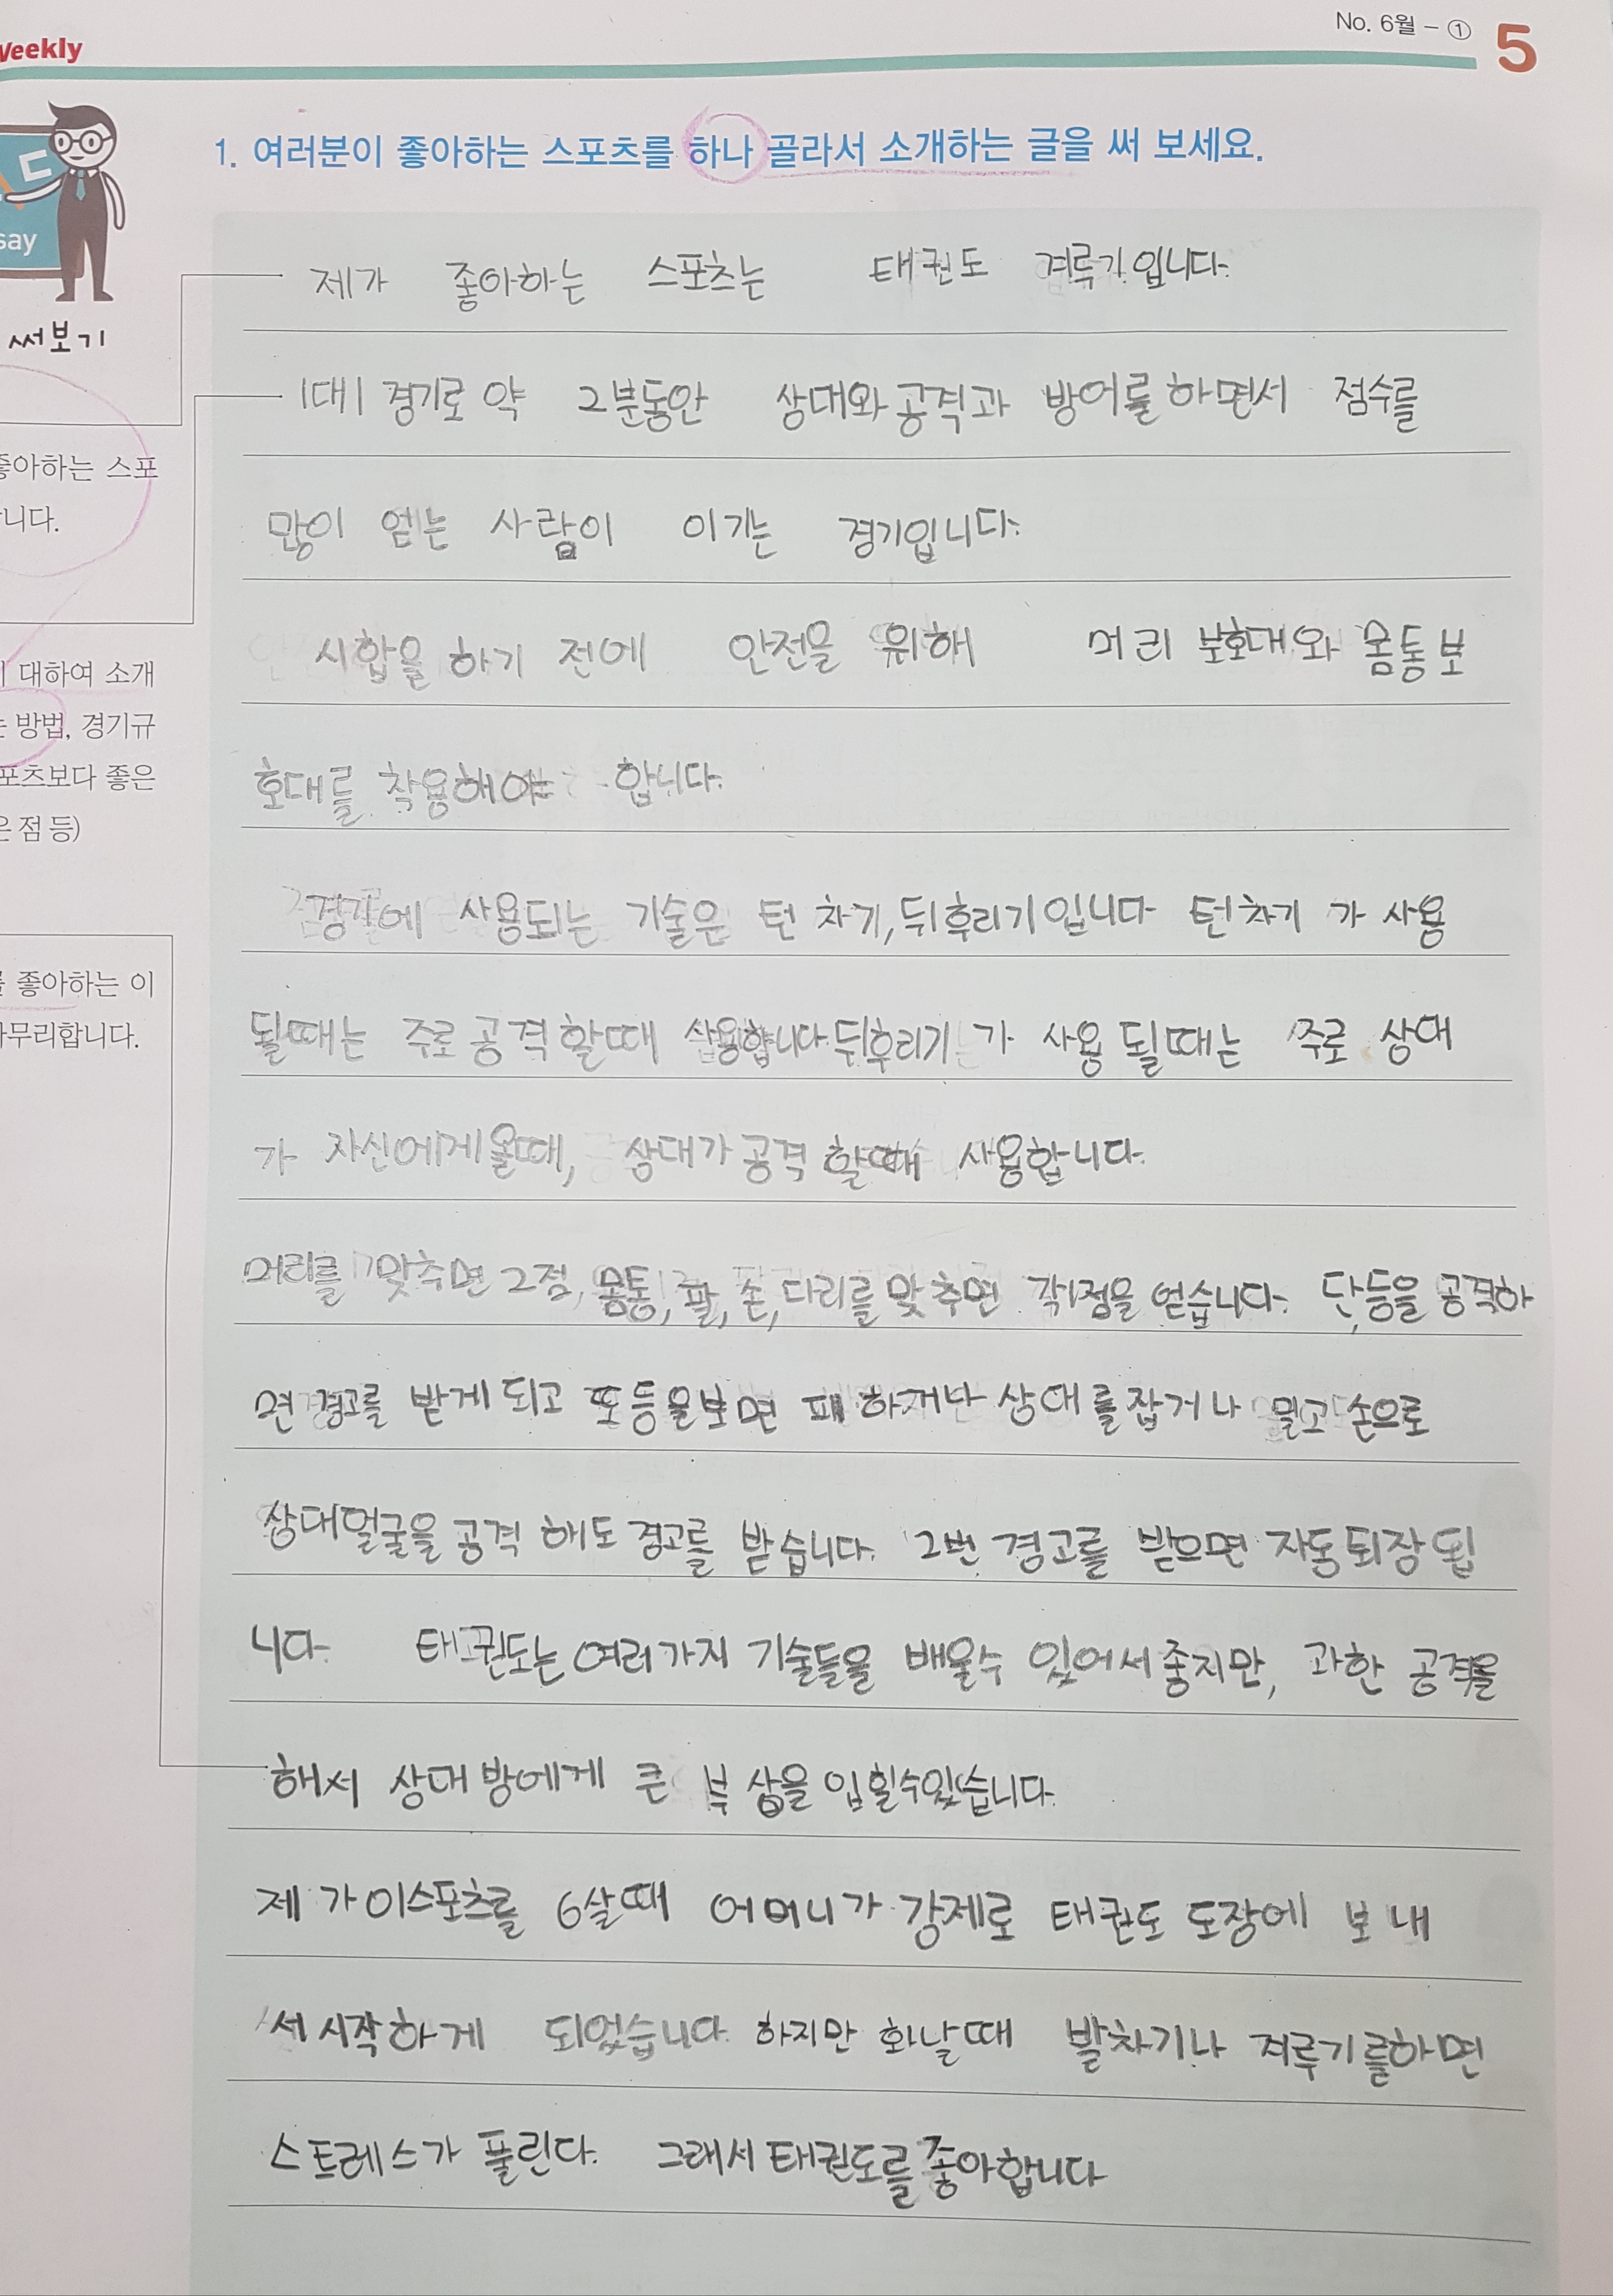 Weekly
No. 6월 - ① 5
say
써보기
1. 여러분이 좋아하는 스포츠를 하나 골라서 소개하는 글을 써 보세요.
좋아하는 스포
니다.
대하여 소개
방법, 경기규
포츠보다 좋은
은 점 등)
를 좋아하는 이
마무리합니다.
제가 좋아하는 스포츠는 태권도 겨루기입니다.
1대1 경기로 약 2분동안 상대와 공격과 방어를 하면서 점수를
많이 얻는 사람이 이기는 경기입니다.
시합을 하기 전에 안전을 위해 머리 보호대와 몸통 보
호대를 착용해야 합니다.
경기에 사용되는 기술은 턴 차기, 뒤후리기입니다 턴차기 가 사용
될때는 주로 공격할때 사용합니다. 뒤후리기 가 사용 될때는 주로 상대
가 자신에게 올때, 상대가 공격 할때 사용합니다.
머리를 맞추면 2점, 몸통, 팔, 손, 다리를 맞추면 각1점을 얻습니다. 단, 등을 공격하
면 경고를 받게 되고 또 등을보면 패 하거나 상대를 잡거나 밀고 손으로
상대얼굴을 공격 해도 경고를 받습니다. 2번 경고를 받으면 자동퇴장 됩
니다. 태권도는 여러가지 기술들을 배울수 있어서 좋지만, 과한 공격을
해서 상대방에게 큰 부상을 입힐수있습니다.
제가 이스포츠를 6살때 어머니가 강제로 태권도 도장에 보내
서 시작하게 되었습니다. 하지만 화날때 발차기나 겨루기를하면
스트레스가 풀린다. 그래서 태권도를 좋아합니다